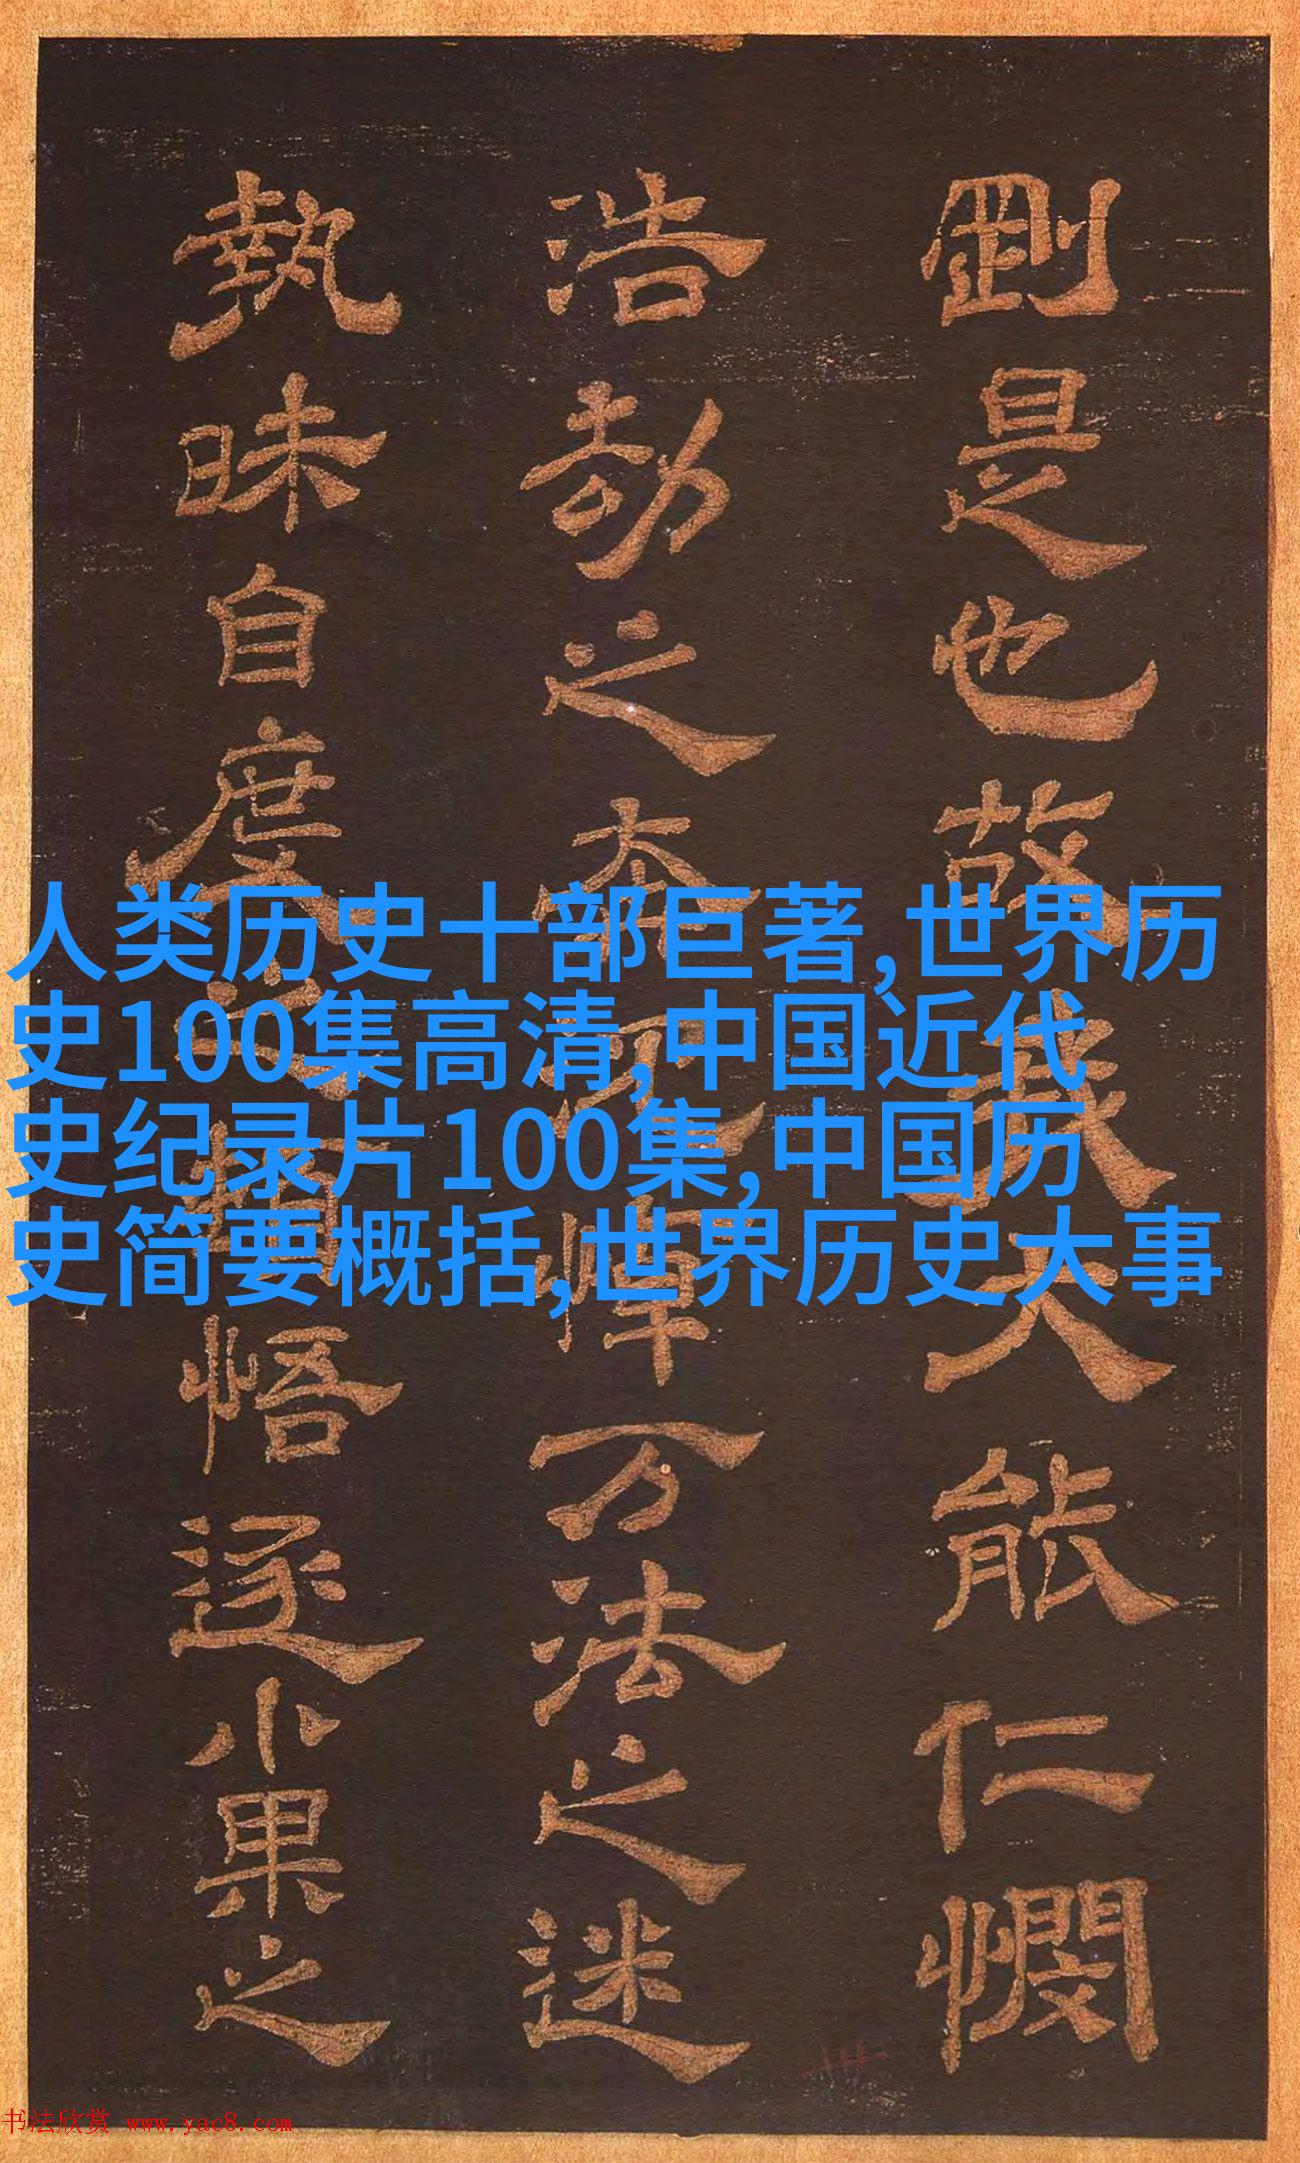 剛是也故我大能仁憫
浩劫之本悼万法之迷
執昧自度之悟逐小果之
人类历史十部巨著,世界历
史100集高清,中国近代
史纪录片100集,中国历
史简要概括,世界历史大事
书法欣赏 www.yac8.com